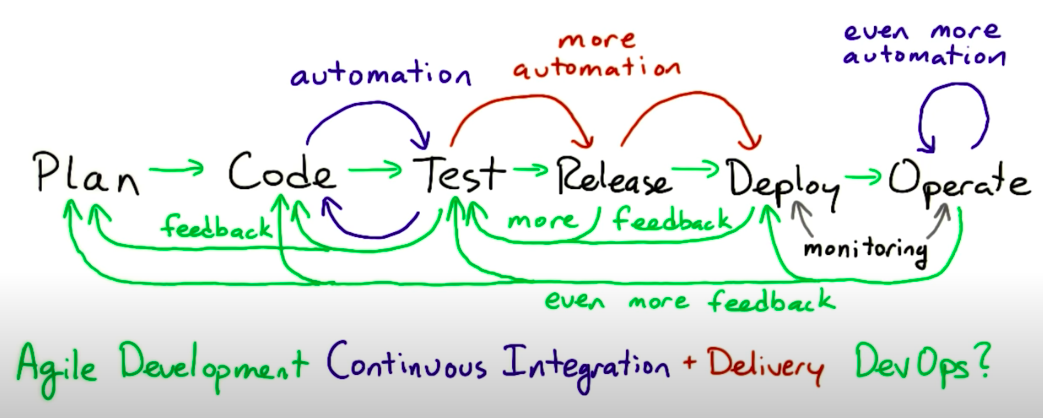 even more
automation
more
automation
automation
Plan → Code → Test → Release → Deploy → Operate
feedback
more feedback
monitoring
even more feedback
Agile Development Continuous Integration + Delivery DevOps?